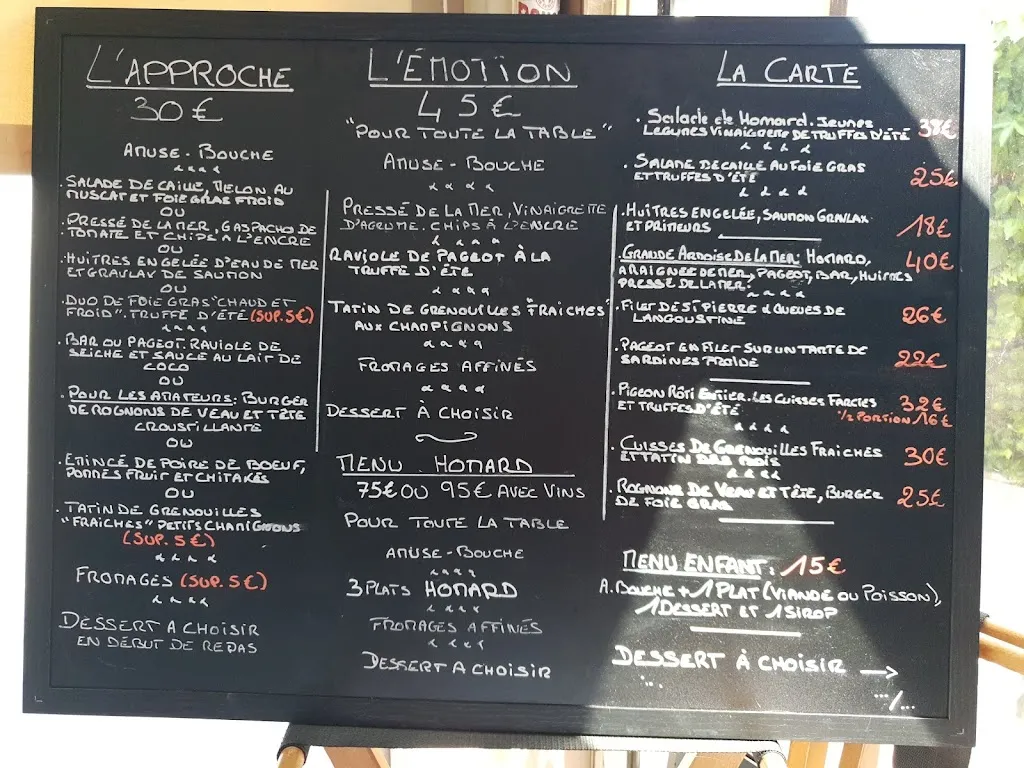 L'APPROCHE
30€
AMUSE-BOUCHE
. SALADE DE CAILLE, MELON AU
MUSCAT ET FOIE GRAS FROID
OU
. PRESSÉ DE LA MER, GASPACHO DE
TOMATE ET CHIPS A L'ENCRE
OU
. HUÎTRES EN GELÉE D'EAU DE MER
ET GRAVLAV DE SAUMON
OU
. DUO DE FOIE GRAS "CHAUD ET
FROID". TRUFFE D'ÉTÉ (SUP. 5€)
. BAR OU PAGEOT. RAVIOLE DE
SEICHE ET SAUCE AU LAIT DE
COCO
OU
. POUR LES AMATEURS: BURGER
DE ROGNONS DE VEAU ET TÊTE
CROUSTILLANTE
OU
. EMINCÉ DE POIRE DE BOEUF,
POMMES FRUIT ET CHITAKÉS
OU
. TATIN DE GRENOUILLES
"FRAICHES" PETITS CHAMPIGNONS
(SUP. 5€)
FROMAGES (SUP. 5€)
DESSERT A CHOISIR
EN DÉBUT DE REPAS
L'ÉMOTION
45€
"POUR TOUTE LA TABLE"
AMUSE-BOUCHE
PRESSÉ DE LA MER, VINAIGRETTE
D'AGRUME. CHIPS À L'ENCRE
RAVIOLE DE PAGEOT À LA
TRUFFE D'ÉTÉ
TATIN DE GRENOUILLES "FRAICHES"
AUX CHAMPIGNONS
FROMAGES AFFINÉS
DESSERT À CHOISIR
MENU HOMARD
75€ OU 95€ AVEC VINS
POUR TOUTE LA TABLE
AMUSE-BOUCHE
3 PLATS HOMARD
FROMAGES AFFINÉS
DESSERT A CHOISIR
LA CARTE
. Salade de Homard. Jeunes
LEGUMES VINAIGRETTE DE TRUFFES D'ÉTÉ 38€
. SALADE DE CAILLE AU FOIE GRAS
ET TRUFFES D'ÉTÉ 25€
. HUÎTRES EN GELÉE, SAUMON GRAVLAX
ET PRIMEURS 18€
. GRANDE ARDOISE DE LA MER: HOMARD, 40€
ARAIGNEE DE MER, PAGEOT, BAR, HUITRES
PRESSE DE LA MER.
. FILET DE ST PIERRE & QUEUES DE
LANGOUSTINE 26€
. PAGEOT EN FILET SUR UN TARTE DE
SARDINES FROIDE 22€
. PIGEON RÔTI ENTIER. LES CUISSES FARCIES 32€
ET TRUFFES D'ÉTÉ 1/2 PORTION 16€
. CUISSES DE GRENOUILLES FRAICHES
ET TATIN 30€
. ROGNONS DE VEAU ET TÊTE, BURGER
DE FOIE GRAS 25€
MENU ENFANT: 15€
A. BOUCHE + 1 PLAT (VIANDE OU POISSON),
1 DESSERT ET 1 SIROP
DESSERT À CHOISIR →
... .../...